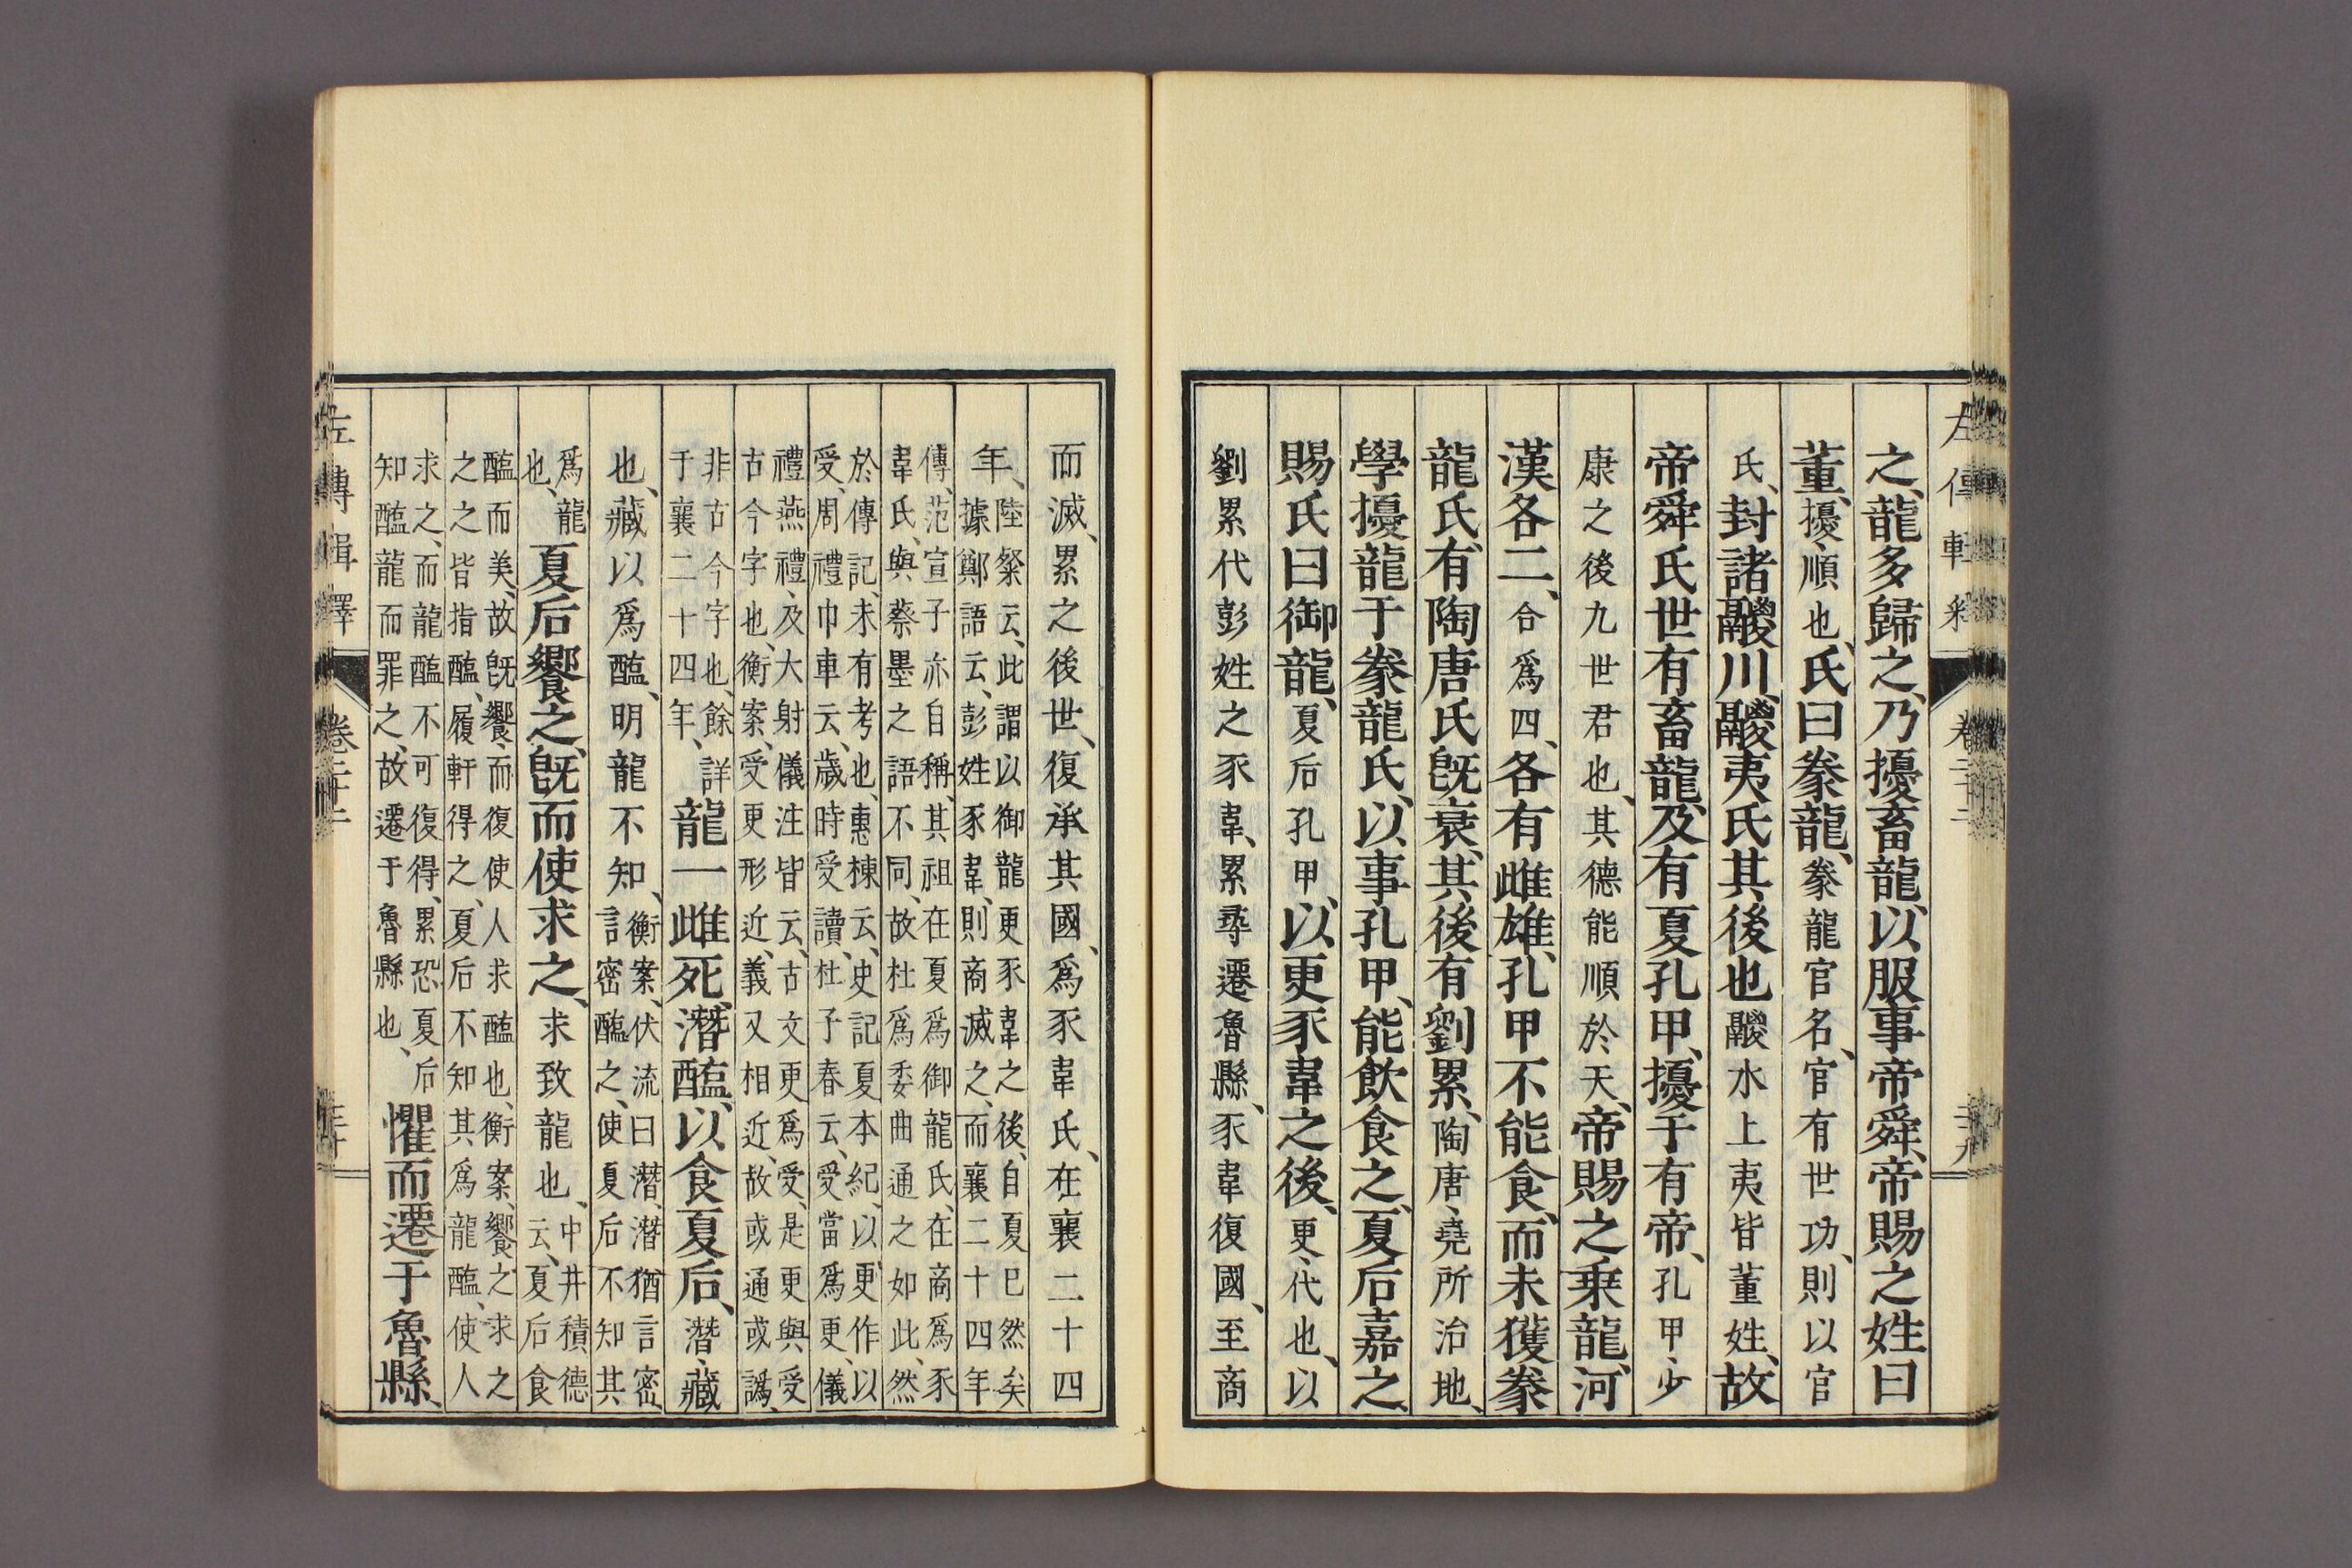 之、龍多歸之、乃擾畜龍、以服事帝舜、帝賜之姓曰
董、擾、順也、氏曰豢龍、豢龍官名、官有世功、則以官
氏、封諸鬷川、鬷夷氏其後也鬷水上夷皆董姓、故
帝舜氏世有畜龍、及有夏孔甲、擾于有帝、孔甲、少
康之後九世君也、其德能順於天、帝賜之乗龍、河
漢各二、合爲四、各有雌雄、孔甲不能食、而未獲豢
龍氏、有陶唐氏旣衰、其後有劉累、陶唐、堯所治地、
學擾龍于豢龍氏、以事孔甲、能飲食之、夏后嘉之、
賜氏曰御龍、夏后孔甲、以更豕韋之後、更、代也、以
劉累代彭姓之豕韋、累尋遷魯縣、豕韋復國、至商
而滅、累之後世、復承其國、爲豕韋氏、在襄二十四
年、
陸粲云、此謂以御龍更豕韋之後、自夏已然矣
據鄭語云、彭姓豕韋、則商滅之、而襄二十四年
傳、范宣子亦自稱、其祖在夏爲御龍氏、在商爲豕
韋氏、與蔡墨之語不同、故杜爲委曲通之如此、然
於傳記、未有考也、惠棟云、史記夏本紀、以更作以
受、周禮巾車云、歲時受讀、杜子春云、受當爲更、儀
禮燕禮、及大射儀注皆云、古文更爲受、是更與受
古今字也、衡案、受更形近、義又相近、故或通或譌、
非古今字也、餘詳
于襄二十四年、
龍一雌死、潛醢、以食夏后、潛、藏
也、藏以爲醢、明龍不知、
衡案、伏流曰潛、潛猶言密
言密醢之、使夏后不知其
爲龍
也、
夏后饗之、旣而使求之、求致龍也、
中井積德
云、夏后食
醢而美、故旣饗、而復使人求醢也、衡案、饗之求之
之之皆指醢、履軒得之、夏后不知其爲龍醢、使人
求之、而龍醢不可復得、累恐夏后
知醢龍而罪之、故遷于魯縣也、
懼而遷于魯縣、
左傳輯釋
卷二十二
三十